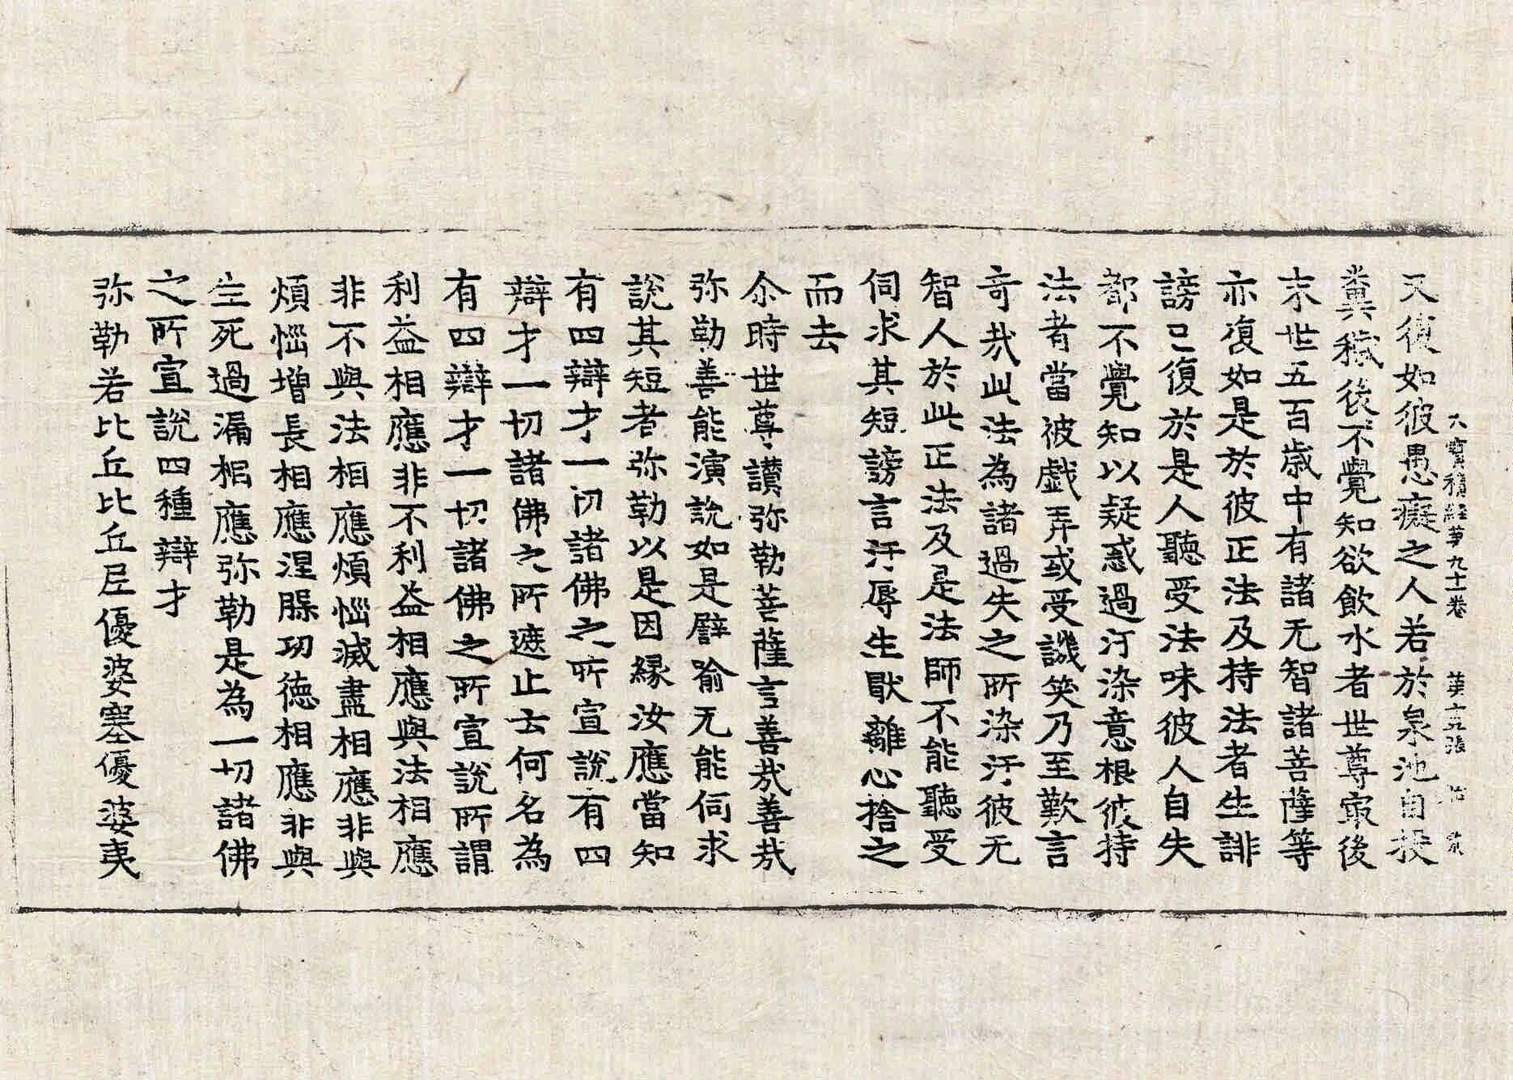 大寶積経第九十一卷 第十五張
又復如彼愚癡之人若於泉池自投
糞穢後不覺知欲飲水者世尊㝡後
末世五百歲中有諸无智諸菩薩等
亦復如是於彼正法及持法者生誹
謗已復於是人聽受法味彼人自失
都不覺知以疑惑過汙染意根彼持
法者當被戲弄或受譏笑乃至歎言
奇哉此法為諸過失之所染汙彼无
智人於此正法及是法師不能聽受
伺求其短謗言汙辱生猒離心捨之
而去
尒時世尊讚弥勒菩薩言善哉善哉
弥勒善能演說如是譬喻无能伺求
說其短者弥勒以是因緣汝應當知
有四辯才一切諸佛之所宣說有四
辯才一切諸佛之所遮止云何名為
有四辯才一切諸佛之所宣說所謂
利益相應非不利益相應與法相應
非不與法相應煩惱滅盡相應非與
煩惱增長相應涅槃功德相應非與
生死過漏相應弥勒是為一切諸佛
之所宣說四種辯才
弥勒若比丘比丘尼優婆塞優婆夷